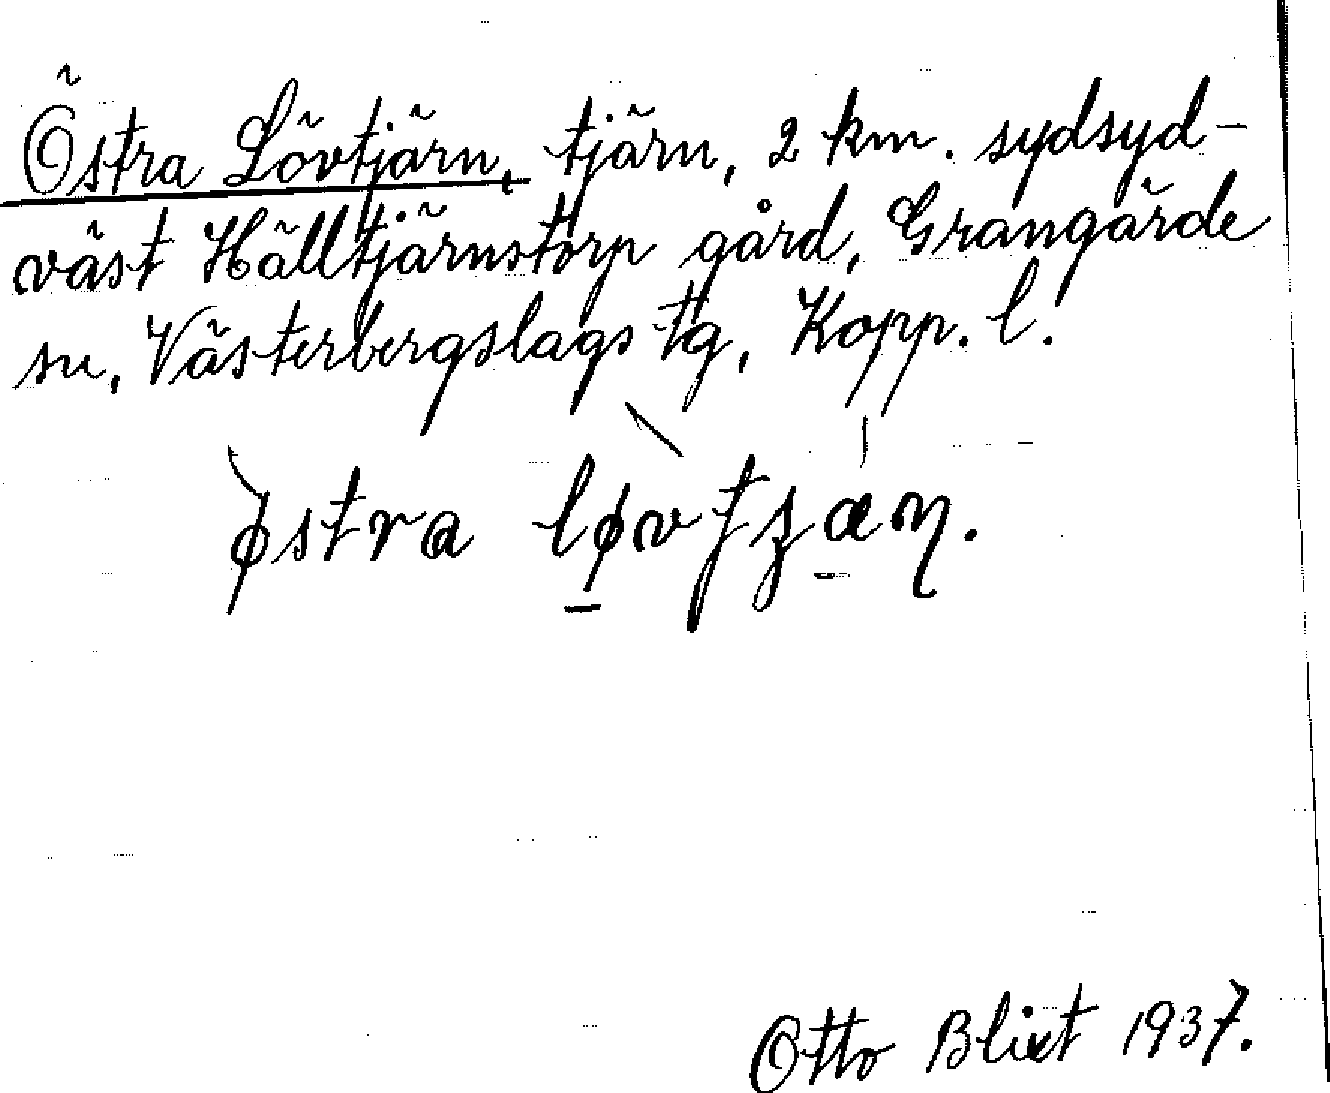 Östra Lövtjärn, tjärn, 2 km. sydsyd-
väst Hälltjärnstorp gård, Grangärde
sn, Västerbergslags tg, Kopp. l.
østra løvtʒæɳ.
Otto Blixt 1937.